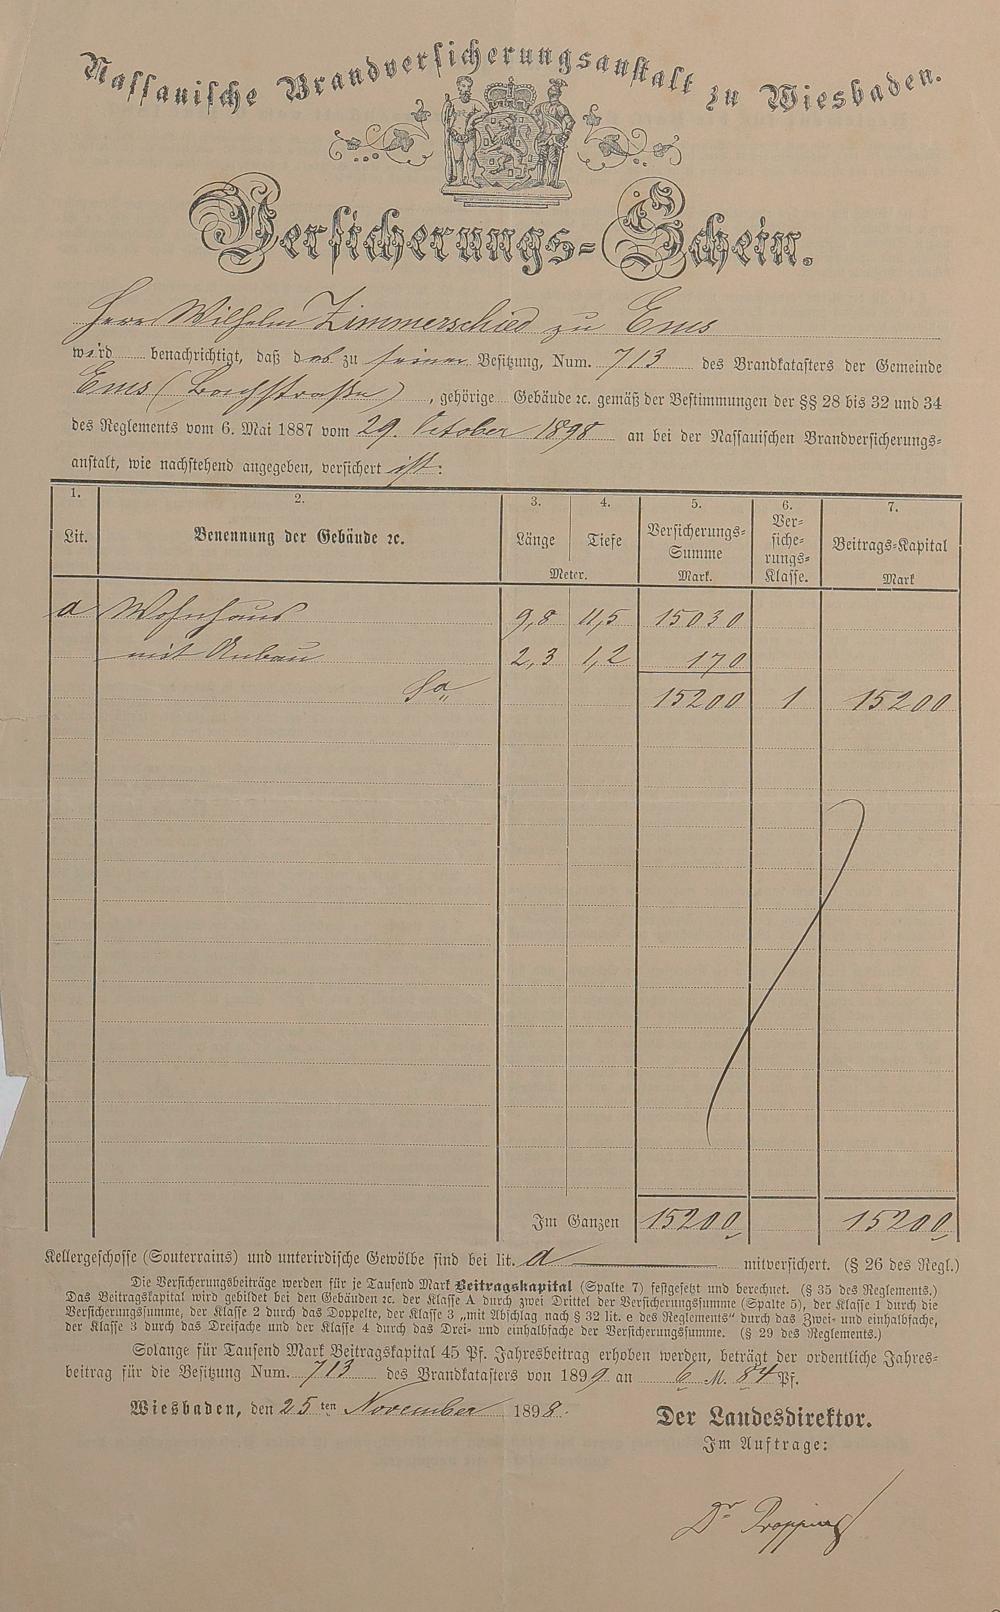 Nassauische Brandversicherungsanstalt zu Wiesbaden.
Versicherungs-Schein.
Herr Wilhelm Zimmerschied zu Ems
wird benachrichtigt, daß das zu seiner Besitzung, Num. 713 des Brandkatasters der Gemeinde
Ems (Bachstraße), gehörige Gebäude ꝛc. gemäß der Bestimmungen der §§ 28 bis 32 und 34
des Reglements vom 6. Mai 1887 vom 29. October 1898 an bei der Nassauischen Brandversicherungs-
anstalt, wie nachstehend angegeben, versichert ist:
1. 2. 3. 4. 5. 6. 7.
Lit. Benennung der Gebäude ꝛc. Länge Tiefe Versicherungs-Summe Ver-siche-rungs-Klasse. Beitrags-Kapital
Meter. Mark. Mark
a Wohnhaus 9,8 11,5 15030
mit Anbau 2,3 1,2 170
Sa 15200 1 15200
Im Ganzen 15200 15200
Kellergeschosse (Souterrains) und unterirdische Gewölbe sind bei lit. a mitversichert. (§ 26 des Regl.)
Die Versicherungsbeiträge werden für je Tausend Mark Beitragskapital (Spalte 7) festgesetzt und berechnet. (§ 35 des Reglements.)
Das Beitragskapital wird gebildet bei den Gebäuden ꝛc. der Klasse A durch zwei Drittel der Versicherungssumme (Spalte 5), der Klasse 1 durch die
Versicherungssumme, der Klasse 2 durch das Doppelte, der Klasse 3 „mit Abschlag nach § 32 lit. e des Reglements" durch das Zwei- und einhalbfache,
der Klasse 3 durch das Dreifache und der Klasse 4 durch das Drei- und einhalbfache der Versicherungssumme. (§ 29 des Reglements.)
Solange für Tausend Mark Beitragskapital 45 Pf. Jahresbeitrag erhoben werden, beträgt der ordentliche Jahres-
beitrag für die Besitzung Num. 713 des Brandkatasters von 1899 an 6 M. 84 Pf.
Wiesbaden, den 25ten November 1898.
Der Landesdirektor.
Im Auftrage:
Dr